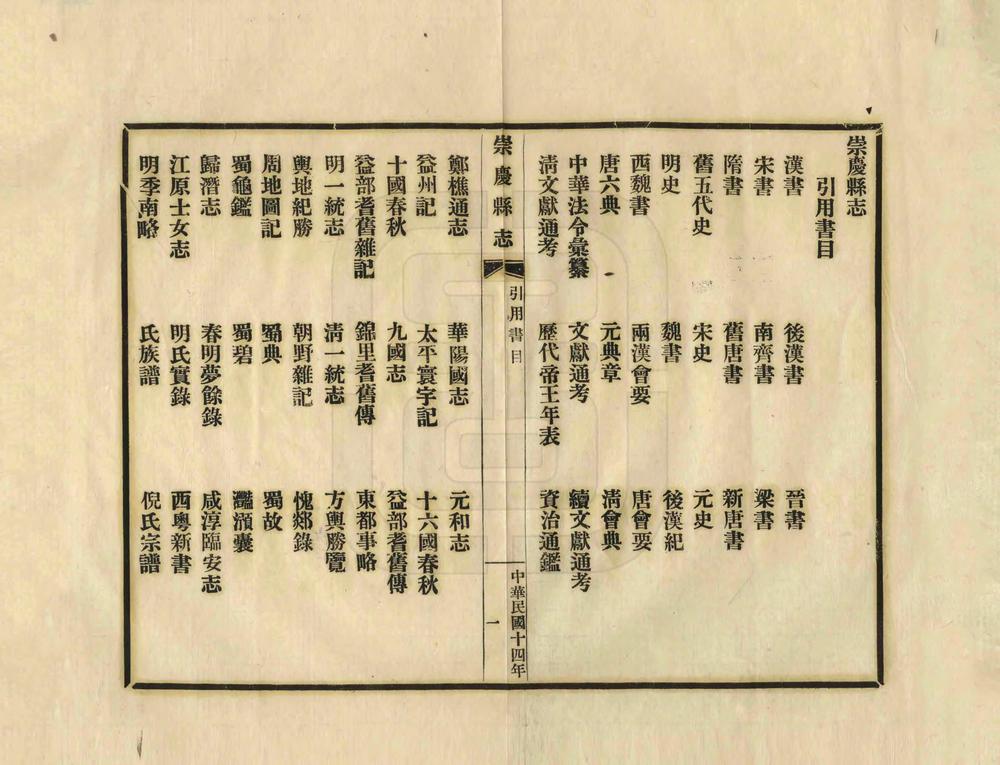 崇慶縣志
引用書目
漢書 後漢書 晉書
宋書 南齊書 梁書
隋書 舊唐書 新唐書
舊五代史 宋史 元史
明史 魏書 後漢紀
西魏書 兩漢會要 唐會要
唐六典 元典章 清會典
中華法令彙纂 文獻通考 續文獻通考
清文獻通考 歷代帝王年表 資治通鑑
崇慶縣志 引用書目 一 中華民國十四年
鄭樵通志 華陽國志 元和志
益州記 太平寰宇記 十六國春秋
十國春秋 九國志 益部耆舊傳
益部耆舊雜記 錦里耆舊傳 東都事略
明一統志 清一統志 方輿勝覽
輿地紀勝 朝野雜記 愧郯錄
周地圖記 蜀典 蜀故
蜀龜鑑 蜀碧 灩澦囊
歸潛志 春明夢餘錄 咸淳臨安志
江原士女志 明氏實錄 西粵新書
明季南略 氏族譜 倪氏宗譜